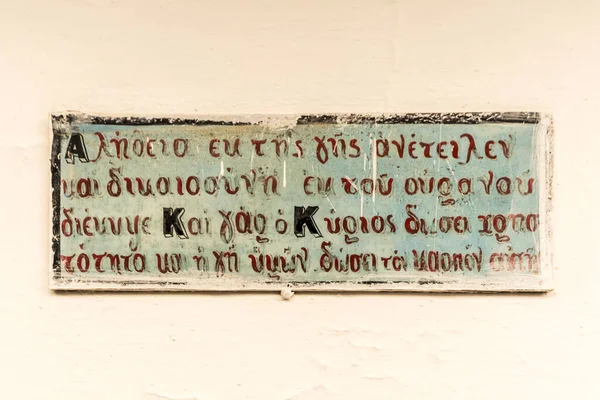 Αλήθεια εκ της γῆς ἀνέτειλεν
και δικαιοσύνη εκ τοῦ οὐρανοῦ
διέκυψε Καὶ γὰρ ὁ Κύριος δώσει χρησ
τότητα και ἡ γῆ ὑμῶν δώσει τὸν καρπόν αὐτῆς